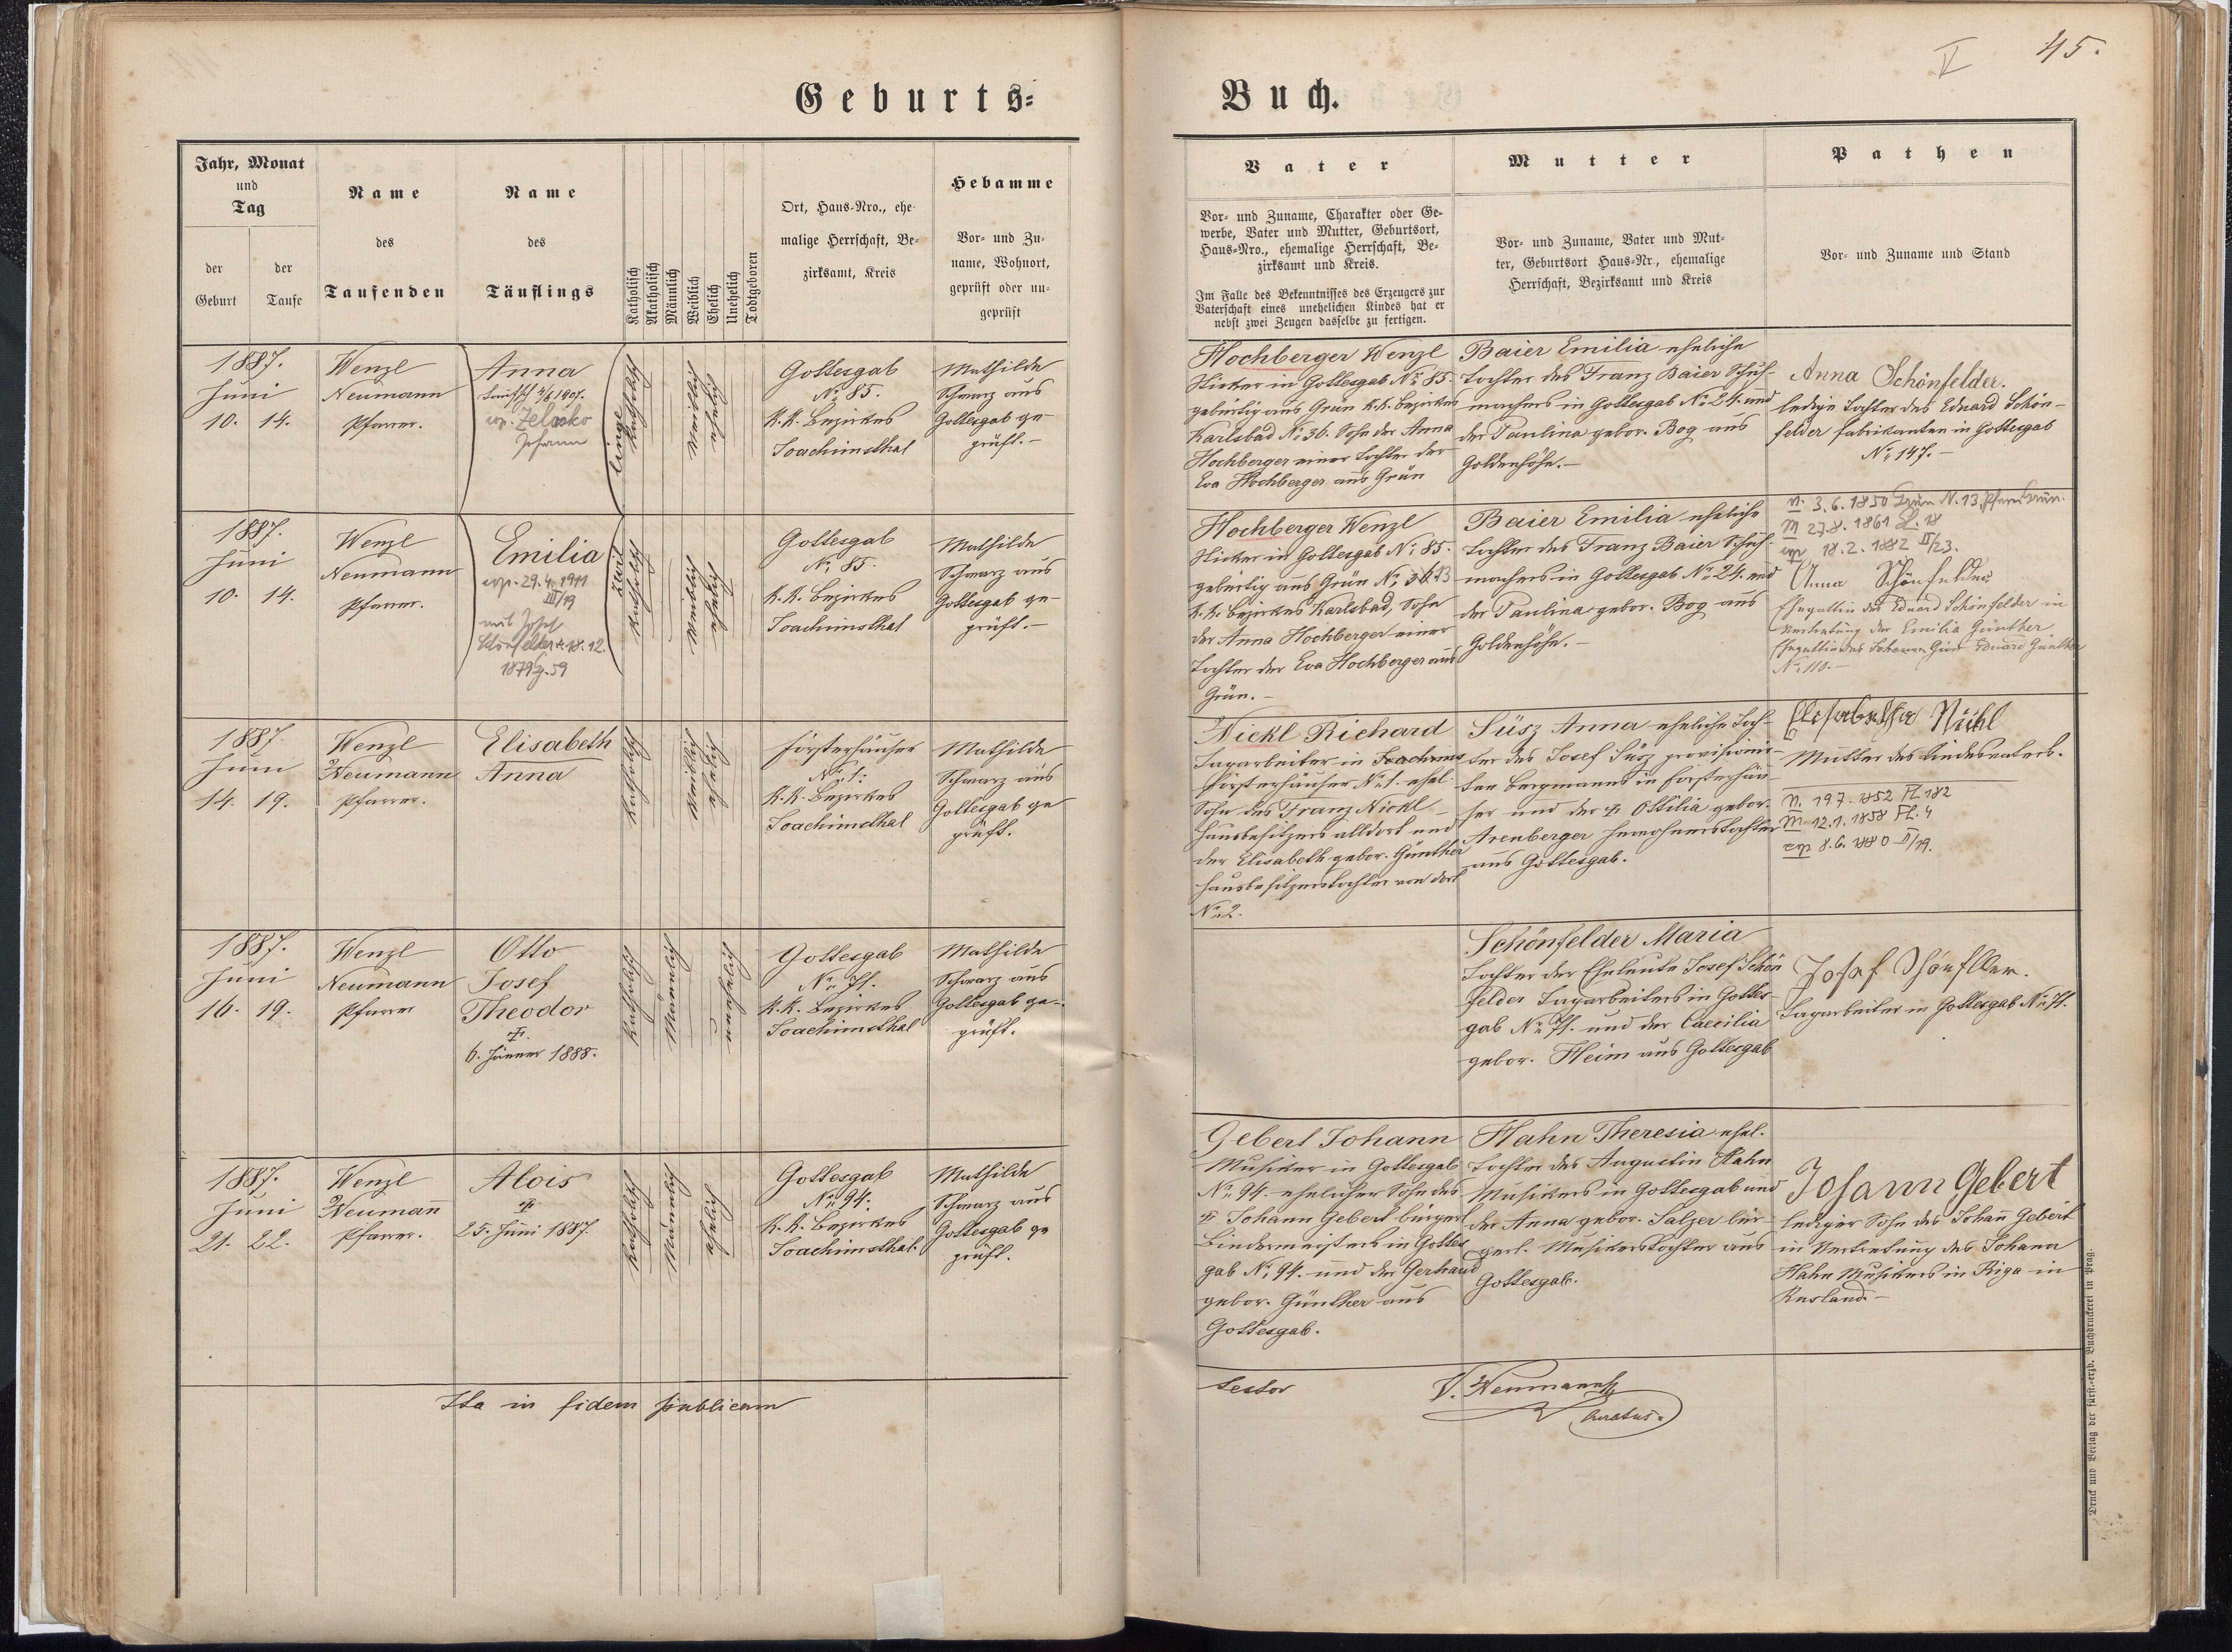 45.
V
Geburts=
Buch.
Jahr, Monat
und
Tag
der
Geburt
der
Taufe
Name
des
Taufenden
Name
des
Täuflings
Katholisch
Akatholisch
Männlich
Weiblich
Ehelich
Unehelich
Todtgeboren
Ort, Haus-Nro., ehe-
malige Herrschaft, Be-
zirksamt, Kreis
Hebamme
Vor- und Zu-
name, Wohnort,
geprüft oder un-
geprüft
Vater
Vor- und Zuname, Charakter oder Ge-
werbe, Vater und Mutter, Geburtsort,
Haus-Nro., ehemalige Herrschaft, Be-
zirksamt und Kreis.
Im Falle des Bekenntnisses des Erzeugers zur
Vaterschaft eines unehelichen Kindes hat er
nebst zwei Zeugen dasselbe zu fertigen.
Mutter
Vor- und Zuname, Vater und Mut-
ter, Geburtsort Haus-Nr., ehemalige
Herrschaft, Bezirksamt und Kreis
Pathen
Vor- und Zuname und Stand
1887.
Juni
10. 14.
Wenzl
Neumann
Pfarrer.
Anna
1907.
cop. Zelasko
Johann
linge
katholisch
weiblich
ehelich
Gottesgab
No 85.
K.K. Bezirkes
Joachimsthal
Mathilde
Schwarz aus
Gottesgab ge-
prüft.-
Hochberger Wenzl
in Gottesgab No 85.
gebürtig aus Grün K.K. Bezirkes
Karlsbad No 36. Sohn der Anna
Hochberger einer Tochter der
Eva Hochberger aus Grün
Baier Emilia eheliche
Tochter des Franz Baier Schuh-
machers in Gottesgab No 24. und
der Paulina gebor. Bog aus
Goldenhöhe.-
Anna Schönfelder.
ledige Tochter des Eduard Schön-
felder Fabrikanten in Gottesgab
No 147.-
1887.
Juni
10. 14.
Wenzl
Neumann
Pfarrer.
Emilia
cop. 29.4.1911
III/19
mit Josef
Schönfelder *18.12.
1879 59
Zwil
katholisch
weiblich
ehelich
Gottesgab
No 85.
K.K. Bezirkes
Joachimsthal
Mathilde
Schwarz aus
Gottesgab ge-
prüft.-
Hochberger Wenzl
in Gottesgab No 85.
gebürtig aus Grün No 36. 13
K.K. Bezirkes Karlsbad, Sohn
der Anna Hochberger einer
Tochter der Eva Hochberger aus
Grün.-
Baier Emilia eheliche
Tochter des Franz Baier Schuh-
machers in Gottesgab No 24. und
der Paulina gebor. Bog aus
Goldenhöhe.-
n. 3.6.1850 Grün N. 13, Pfarre Grün.
M 27.8.1861 18
cop 18.2.1882 II/23.
Anna Schönfelder
Ehegattin des Eduard Schönfelder in
Vertretung der Emilia Günther
Ehegattin des Eduard Günther
No 110.-
1887.
Juni
14. 19.
Wenzl
Neumann
Pfarrer.
Elisabeth
Anna
katholisch
weiblich
ehelich
Försterhäuser
No 1.
K.K. Bezirkes
Joachimsthal
Mathilde
Schwarz aus
Gottesgab ge
prüft.
Nickl Richard
Tagarbeiter in Joachims
Försterhäuser No 1. ehel.
Sohn des Franz Nickl
Hausbesitzers alldort und
der Elisabeth gebor. Günther
Hausbesitzerstochter von dort
No 2.
Süsz Anna eheliche Toch-
ter des Josef Süsz provisionir-
ten Bergmanns in Försterhäu-
ser und der † Ottilia gebor.
Arenberger Inwohnerstochter
aus Gottesgab.
Elisabetha Nickl
Mutter des Kindesvaters.
n. 19.7.1852 Fl. 182
M 12.1.1858 Fl. 4
cop 8.6.1880 II/19.
1887.
Juni
16. 19.
Wenzl
Neumann
Pfarrer
Otto
Josef
Theodor
†
6. Jänner 1888.
katholisch
männlich
unehelich
Gottesgab
No 71.
K.K. Bezirkes
Joachimsthal
Mathilde
Schwarz aus
Gottesgab ge-
prüft.
Schönfelder Maria
Tochter der Eheleute Josef Schön
felder Tagarbeiters in Gottes-
gab No 71. und der Caecilia
gebor. Heim aus Gottesgab
Josef
Tagarbeiter in Gottesgab No 71.
1887.
Juni
21. 22.
Wenzl
Neumañ
Pfarrer.
Alois
†
25. Juni 1887.
katholisch
männlich
ehelich
Gottesgab
No 94.
K.K. Bezirkes
Joachimsthal.
Mathilde
Schwarz aus
Gottesgab ge
prüft.
Gebert Johann
Musiker in Gottesgab
No 94. ehelicher Sohn des
† Johann Gebert bürgerl
Bindermeisters in Gottes
gab No 94. und der Gertraud
gebor. Günther aus
Gottesgab.
Hahn Theresia ehel.
Tochter des Augustin Hahn
Musikers in Gottesgab und
der Anna gebor. Salzer bür-
gerl. Musikerstochter aus
Gottesgab.
Johann Gebert
lediger Sohn des Johañ Gebert
in Vertretung des Johann
Hahn Musikers in Riga in
Rusland.-
Ita in fidem publicam
testor
V. Neumann
Curatus.
Druck und Verlag der fürst.-erzb. Buchdruckerei in Prag.